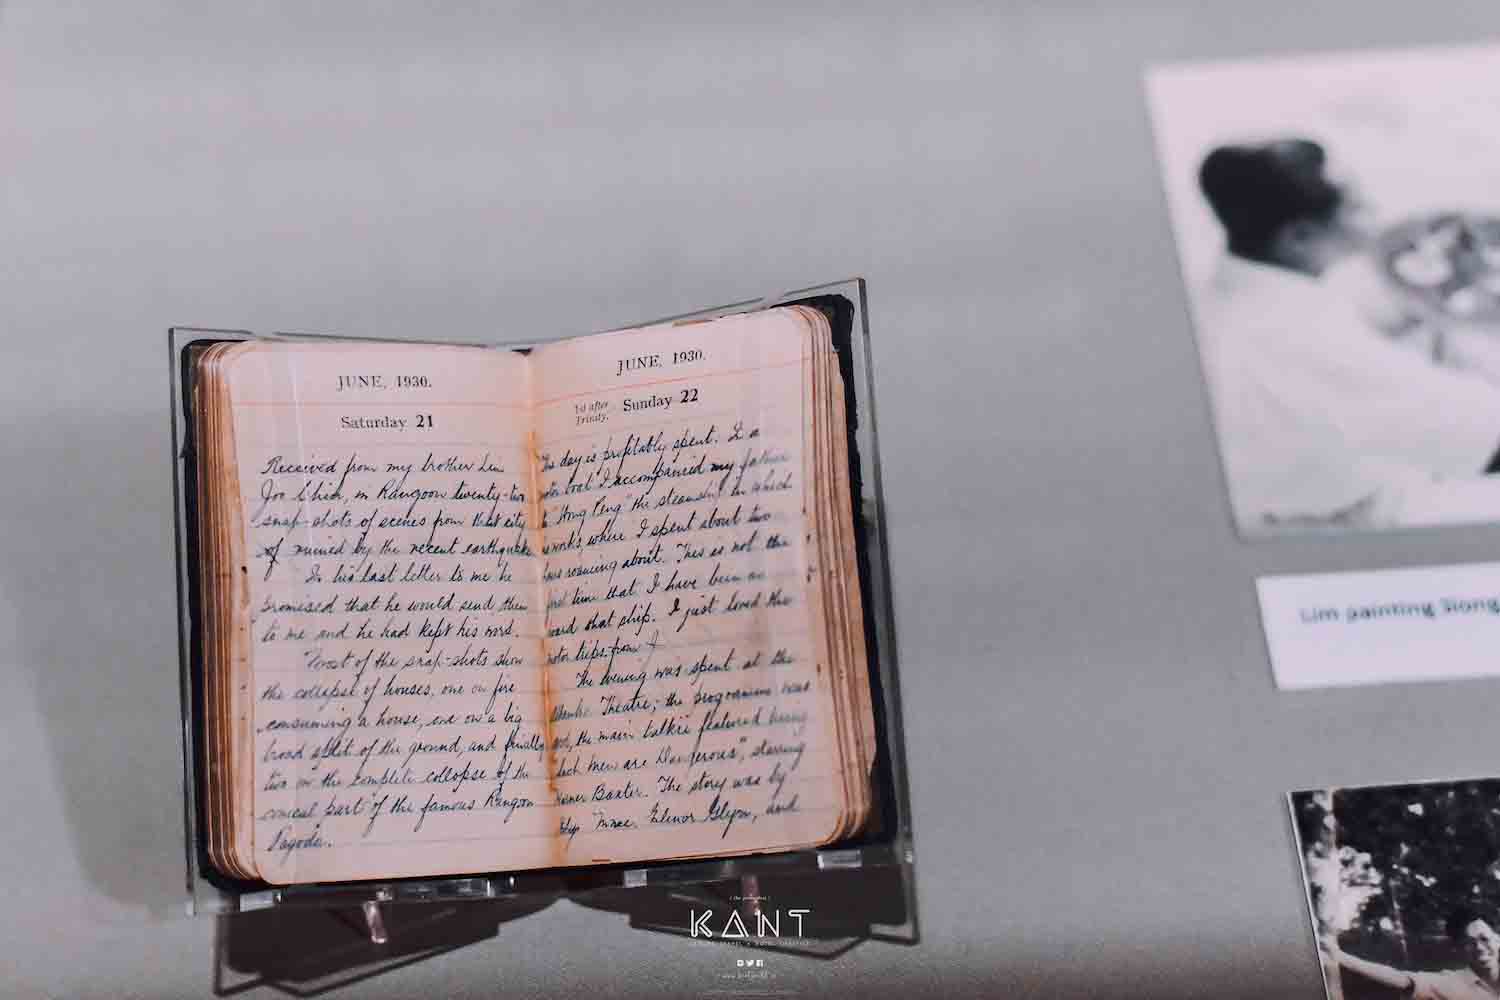 JUNE, 1930.
Saturday 21
Received from my brother Lim
Joo Chin, in Rangoon twenty-two
snap-shots of scenes from that city
of ruined by the recent earthquake
In his last letter to me he
promised that he would send them
to me and he had kept his word.
Most of the snap-shots show
the collapse of houses, one on fire
consuming a house, one on a big
broad split of the ground, and finally
two on the complete collapse of the
conical part of the famous Rangoon
Pagoda.
JUNE, 1930.
1st after Trinity. Sunday 22
The day is profitably spent. In a
motor boat I accompanied my father
to "Hong Peng" the steamship in which
he works, where I spent about two
hours roaming about. This is not the
first time that I have been on
board that ship. I just loved the
motor trips.
The evening was spent at the
Theatre; the programme was
good, the main talkie featured being
"Such Men are Dangerous", starring
Warner Baxter. The story was by
Mrs. Elinor Glyn, and
Lim painting Siong
KANT